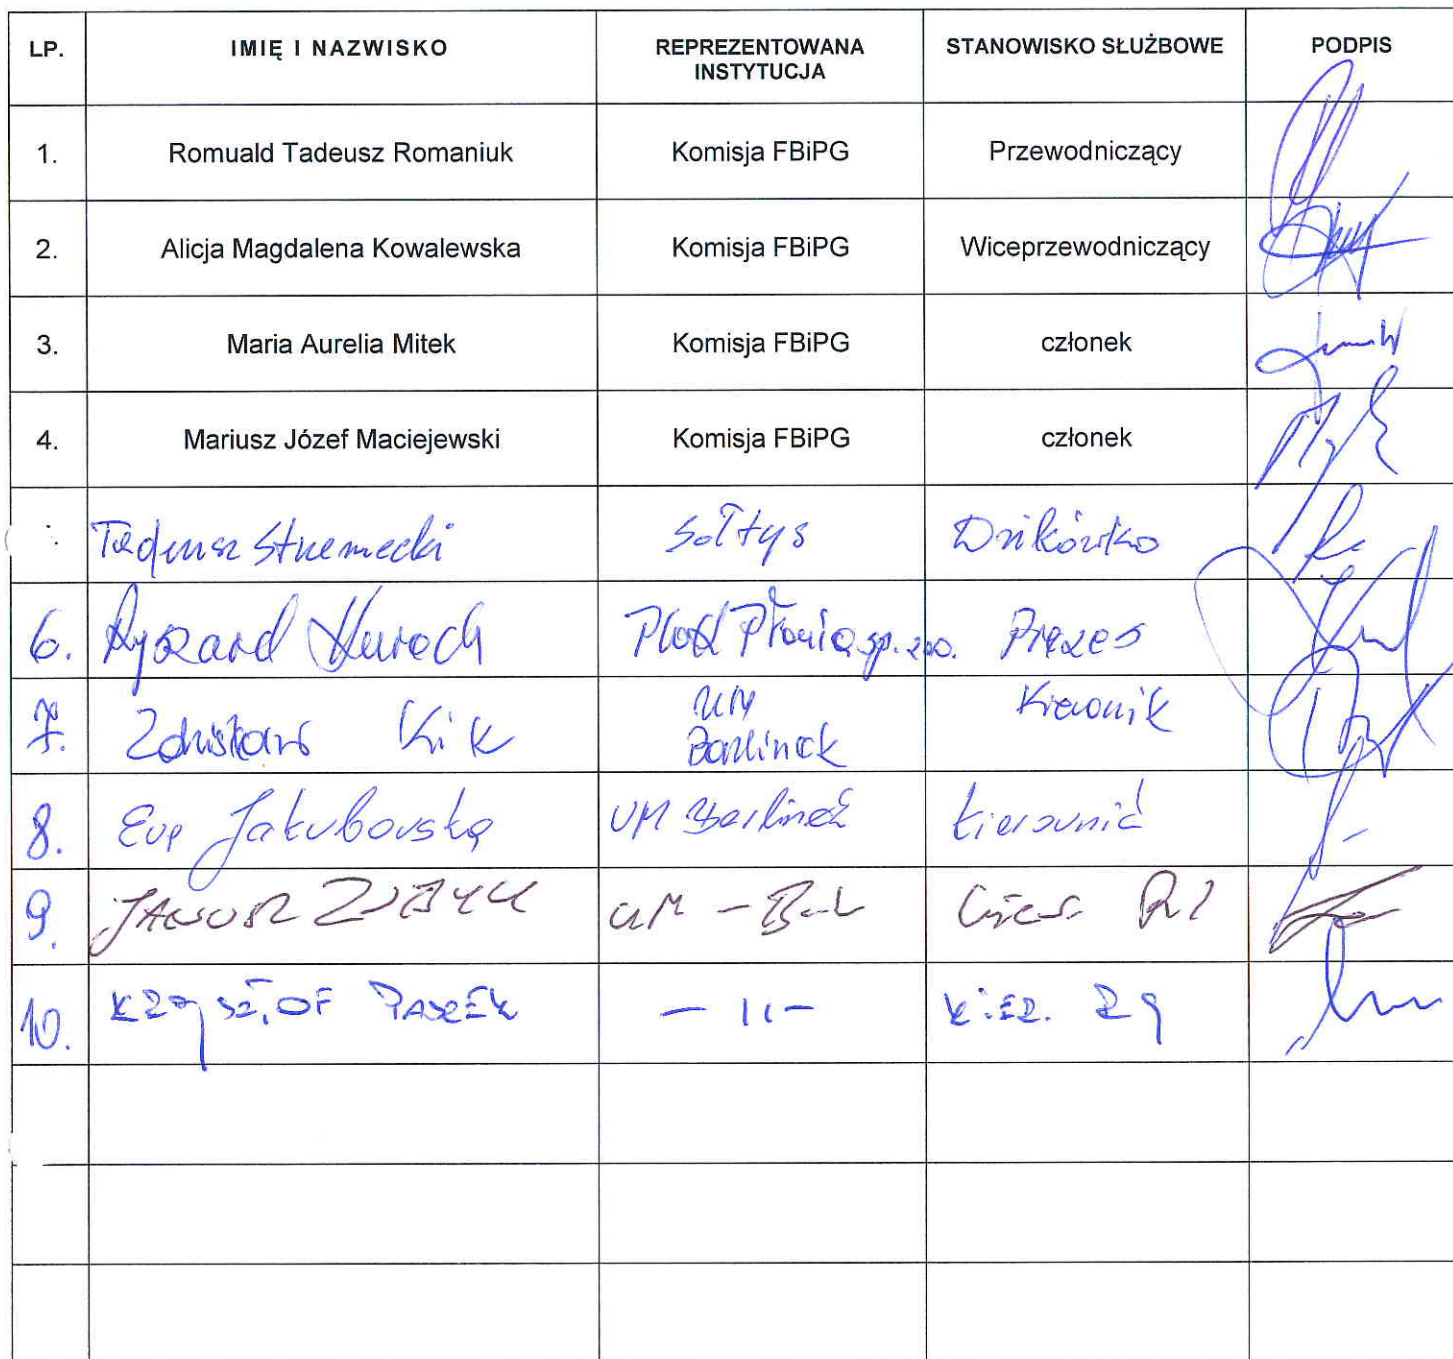 LP. IMIĘ I NAZWISKO REPREZENTOWANA INSTYTUCJA STANOWISKO SŁUŻBOWE PODPIS
1. Romuald Tadeusz Romaniuk Komisja FBiPG Przewodniczący
2. Alicja Magdalena Kowalewska Komisja FBiPG Wiceprzewodniczący
3. Maria Aurelia Mitek Komisja FBiPG członek
4. Mariusz Józef Maciejewski Komisja FBiPG członek
Tadeusz Sołtys
6. Ryszard Płonia sp. zoo. Prezes
7. Zdzisław Kik UM Barlinek Kierownik
8. Ewa Jakubowska UM Barlinek kierownik
9. JANUSZ UM
10. PASZEK - 11 -